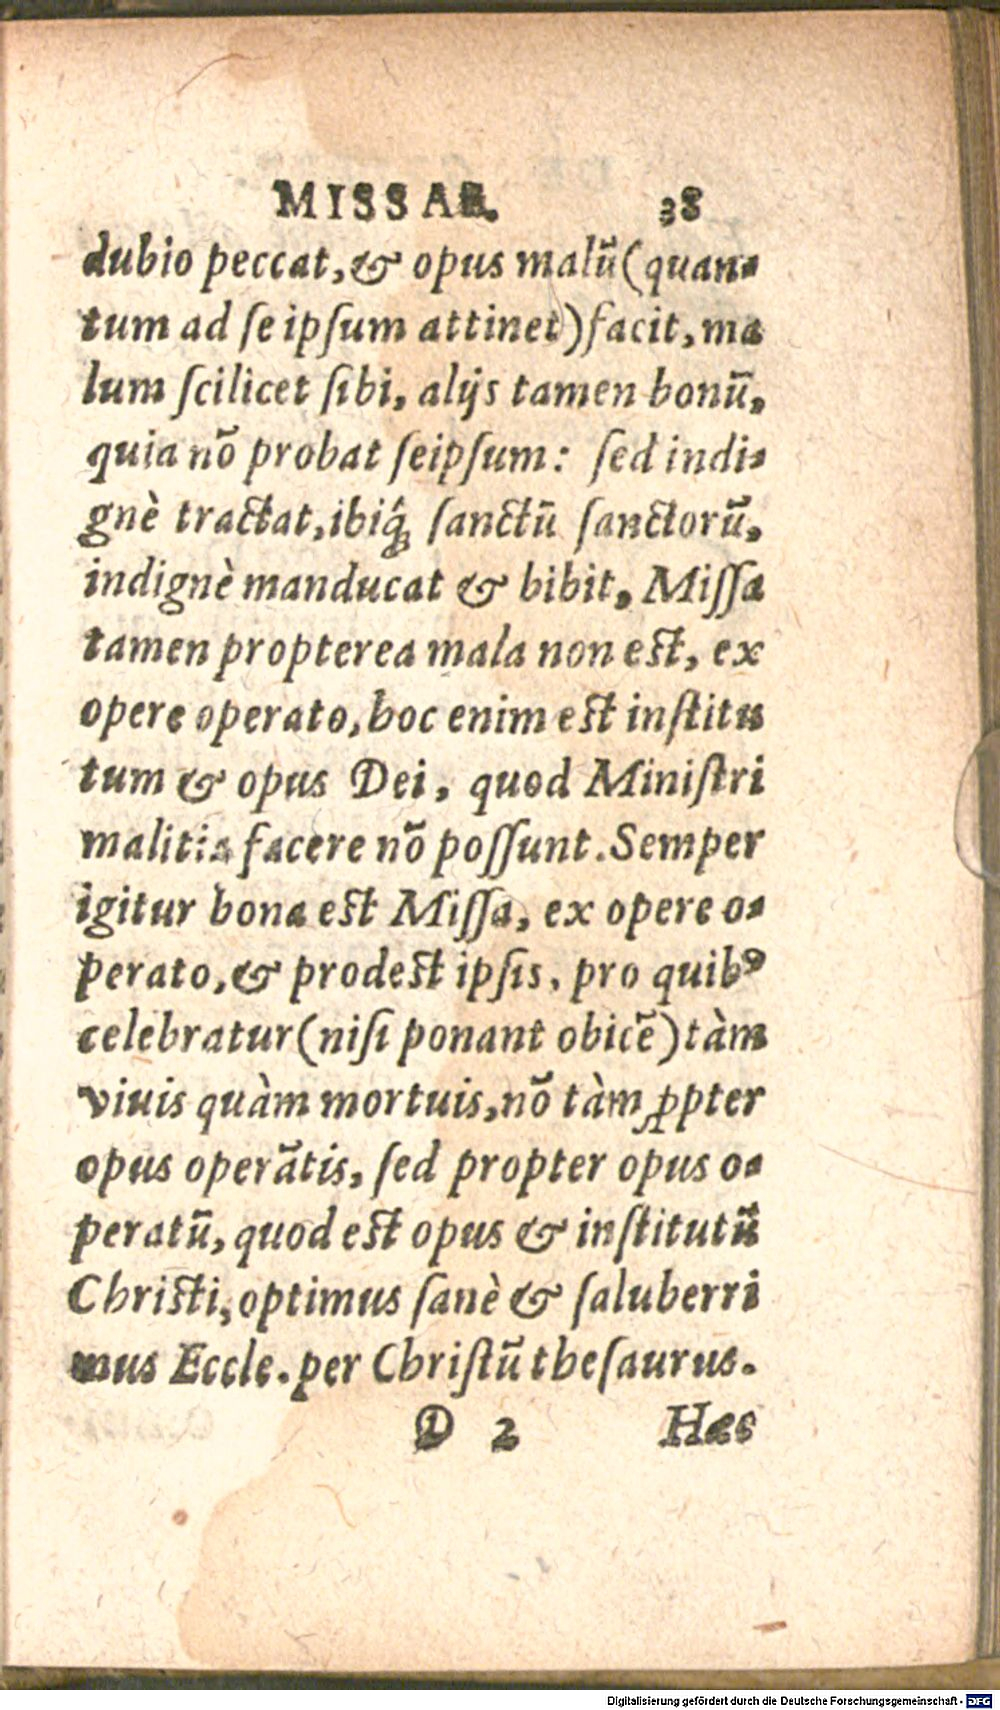 MISSAE. 38
dubio peccat, & opus malū (quan-
tum ad se ipſum attinet) facit, ma
lum ſcilicet ſibi, alijs tamen bonū,
quia nō probat ſeipſum: ſed indi-
gnè tractat, ibiq́; ſanctū ſanctorū,
indignè manducat & bibit, Miſſa
tamen propterea mala non est, ex
opere operato, hoc enim est inſtitu
tum & opus Dei, quod Miniſtri
malitia facere nō poſſunt. Semper
igitur bona est Miſſa, ex opere o-
perato, & prodest ipſis, pro quibꝰ
celebratur (niſi ponant obicē) tàm
viuis quàm mortuis, nō tàm ꝓpter
opus operātis, ſed propter opus o-
peratū, quod est opus & inſtitutū
Christi, optimus ſanè & ſaluberri
mus Eccle. per Chriſtū theſaurus.
D 2 Hæc
Digitalisierung gefördert durch die Deutsche Forschungsgemeinschaft - DFG